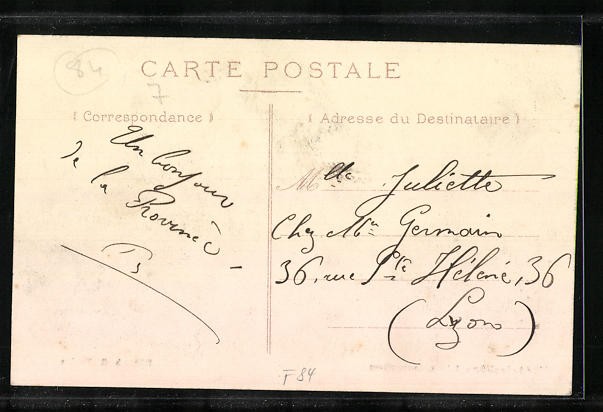 84
CARTE POSTALE
7
(Correspondance)
(Adresse du Destinataire)
Un bonjour
de la Provence
Mlle Juliette
Chez Mme Germain
36, rue Ste Hélène, 36
(Lyon)
F84